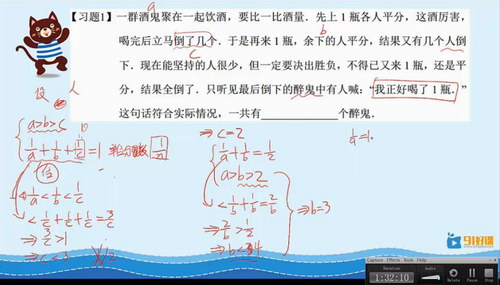 a
【习题1】一群酒鬼聚在一起饮酒，要比一比酒量．先上1瓶各人平分，这酒厉害，
b
喝完后立马倒了几个．于是再来1瓶，余下的人平分，结果又有几个人倒
c
下．现在能坚持的人很少，但一定要决出胜负，不得已又来1瓶，还是平
分，结果全倒了．只听见最后倒下的醉鬼中有人喊："我正好喝了1瓶．"
这句话符合实际情况，一共有____个醉鬼．
设
a>b>c
1/a+1/b+1/c=1
1/a<1/b<1/c
<1/c+1/c+1/c=3/c
⇒3/c>1
⇒c<3
⇒c=2
1/a+1/b=1/2
a>b>2
<1/b+1/b=2/b
⇒2/b>1/2
⇒b<4
⇒b=3
91好课
Duration
1:32:10
Record
Pause
Stop